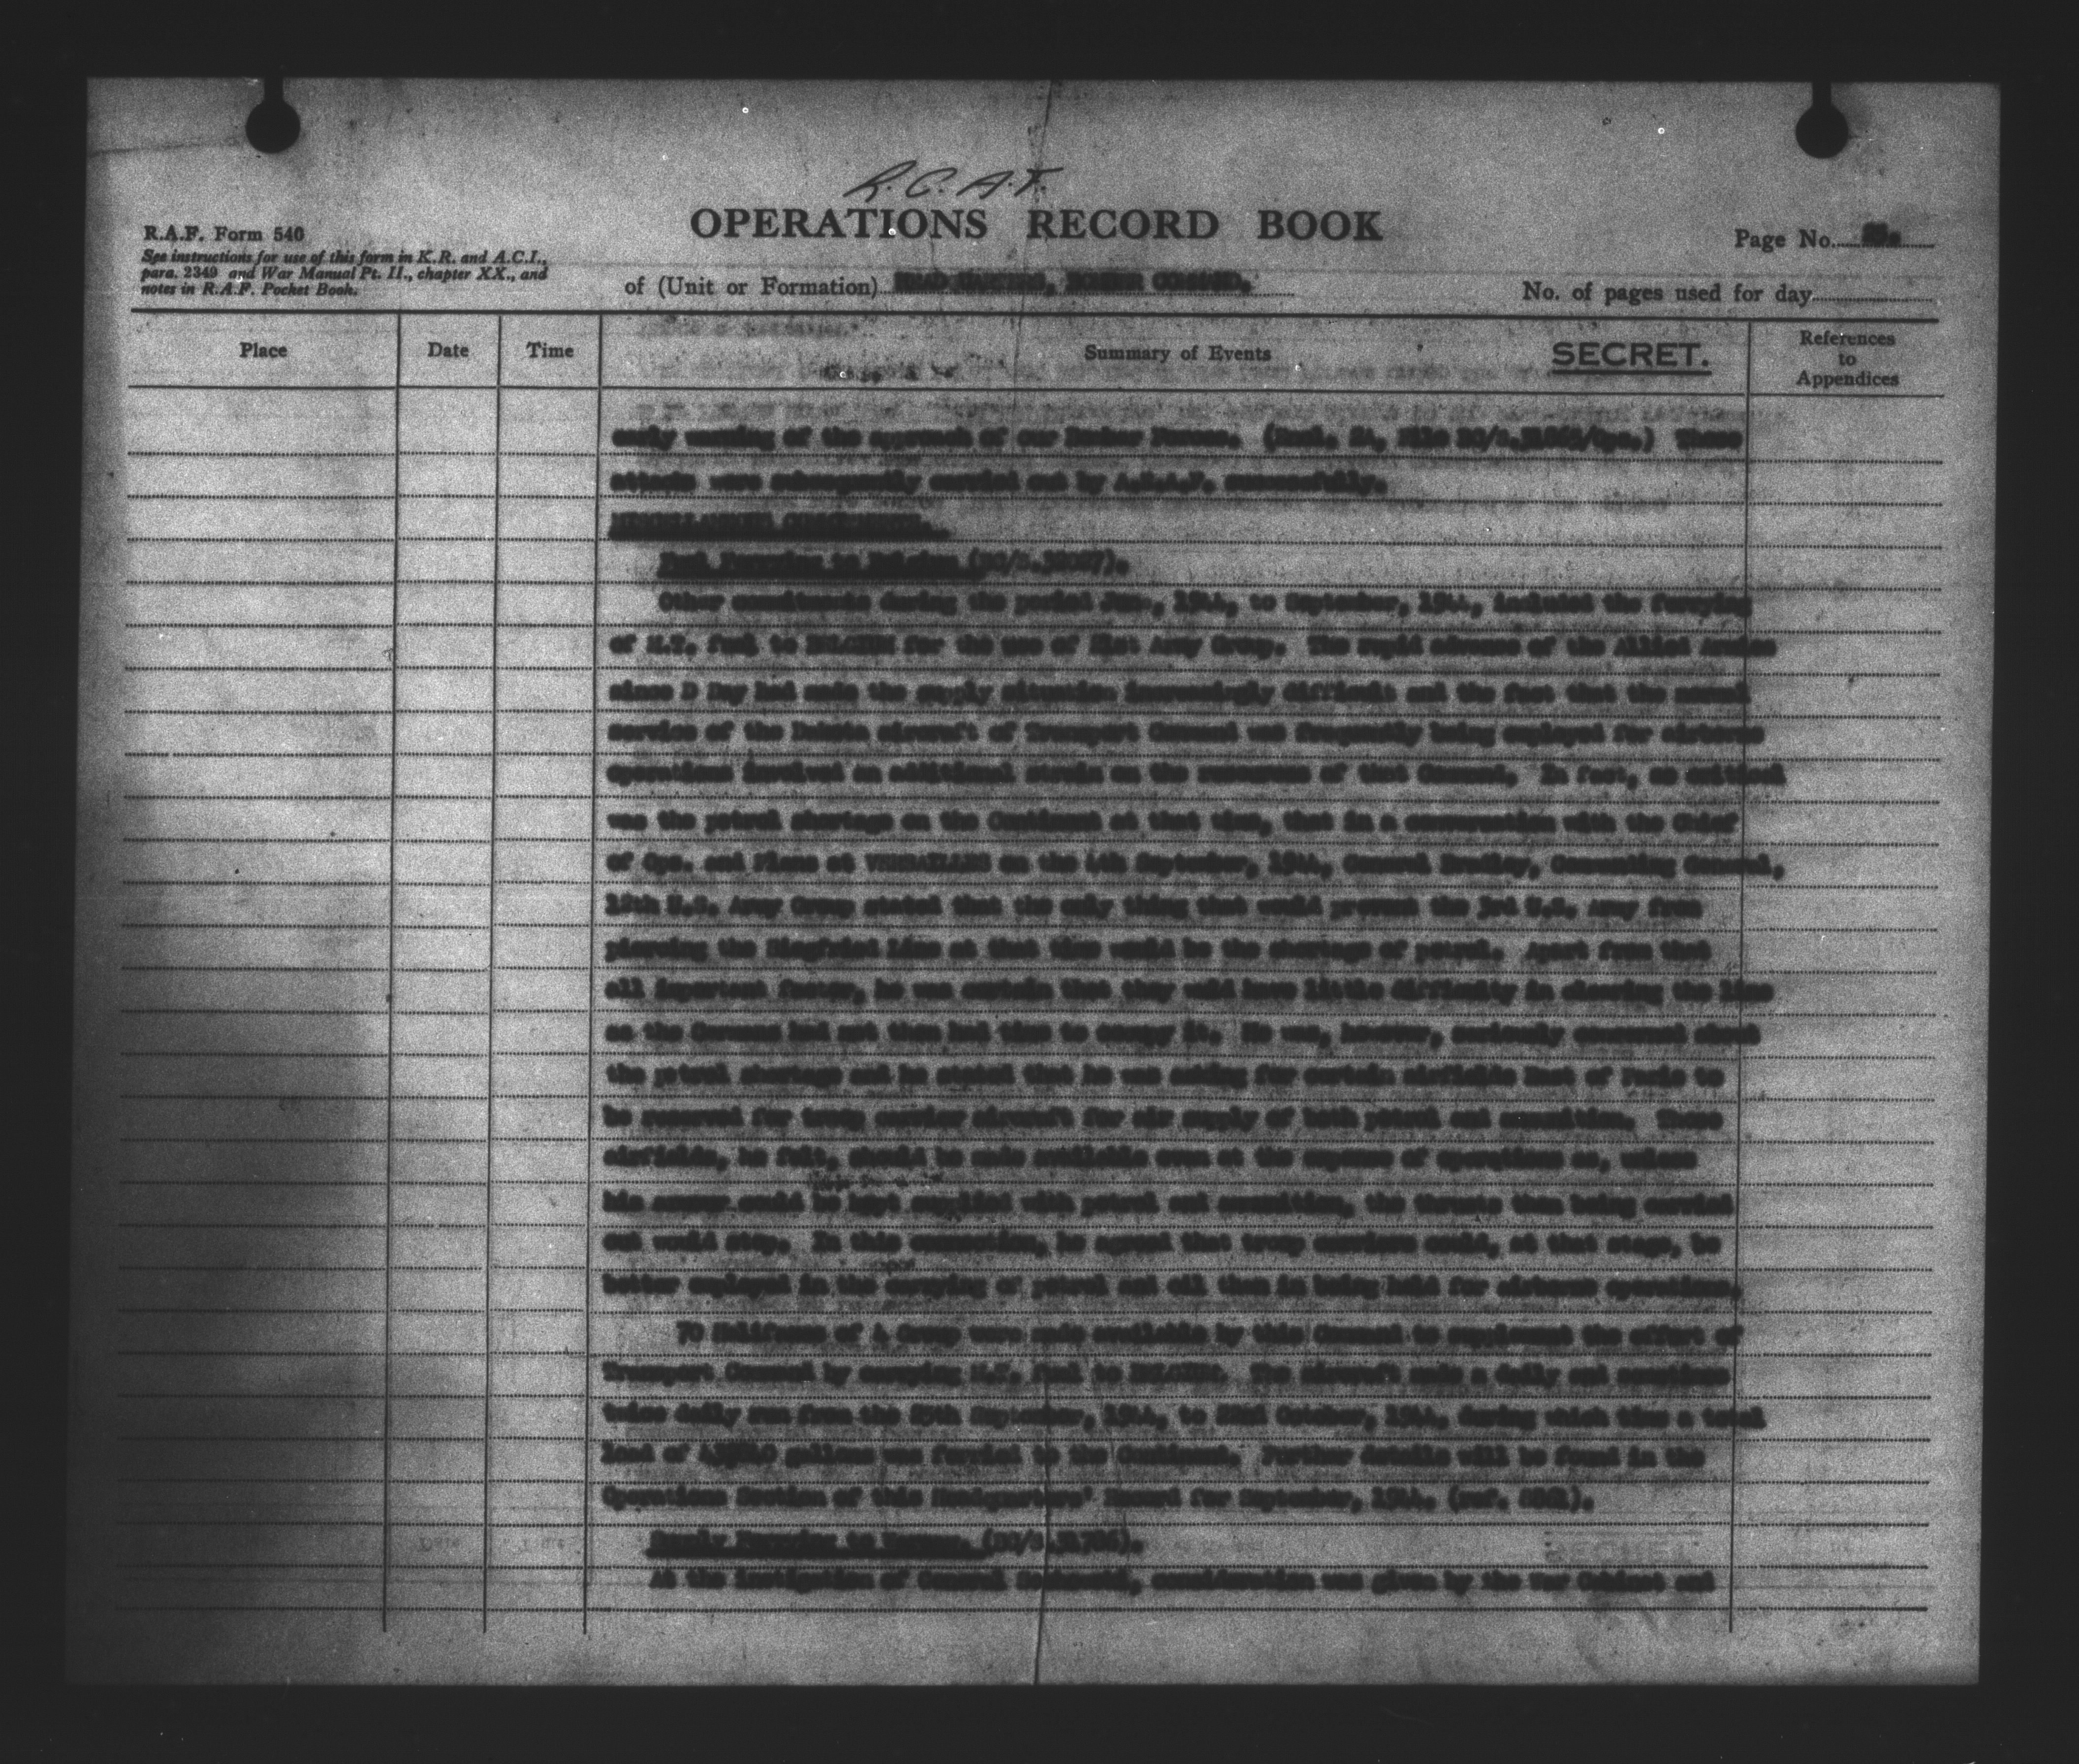 R.C.A.F.
OPERATIONS RECORD BOOK
R.A.F. Form 540
See instructions for use of this form in K.R. and A.C.I.,
para. 2349 and War Manual Pt. II., chapter XX., and
notes in R.A.F. Pocket Book.
Page No.
of (Unit or Formation) HEADQUARTERS, BOMBER COMMAND.
No. of pages used for day
Place Date Time Summary of Events SECRET. References to Appendices
early warning of the approach of our Bomber Forces. (Encl. File These
attacks were subsequently carried out by successfully.
MISCELLANEOUS COMMITMENTS.
Fuel Ferrying to Belgium
Other commitments during the period June, 1944, to September, 1944, included the ferrying
of M.T. fuel to BELGIUM for the use of 21st Army Group. The rapid advance of the Allied Armies
since D Day had made the supply situation increasingly difficult and the fact that the normal
service of the Dakota aircraft of Transport Command was frequently being employed for airborne
operations involved an additional strain on the resources of that Command. In fact, so critical
was the petrol shortage on the Continent at that time, that in a conversation with the Chief
of Ops. and Plans at VERSAILLES on the September, 1944, General Bradley, Commanding General,
12th U.S. Army Group stated that the only thing that would prevent the 3rd U.S. Army from
piercing the Siegfried Line at that time would be the shortage of petrol. Apart from that
all important factor, he was certain that they would have little difficulty in clearing the line
as the Germans had not then had time to occupy it. He was, however, concerned about
the petrol shortage and he stated that he was asking for certain airfields of to
be reserved for troop carrier aircraft for air supply of both petrol and ammunition. These
airfields, he felt, should be made available even at the expense of operations as, unless
his could be kept supplied with petrol and ammunition, the then being carried
out would stop. In this connection, he agreed that troop carriers could, at that stage, be
better employed in the carrying of petrol and oil than in being held for airborne operations.
70 Halifaxes of 4 Group were made available by this Command to supplement the effort of
Transport Command by carrying M.T. fuel to BELGIUM. The aircraft made a daily and sometimes
twice daily run from the September, 1944, to October, 1944, during which time a total
load of gallons was ferried to the Continent. Further details will be found in the
Operations Section of this Headquarters' Record for September, 1944.
Supply Ferrying to
At the instigation of General consideration was given by the War Cabinet and